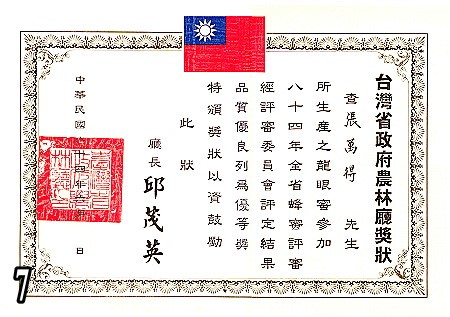 台灣省政府農林廳獎狀
查張萬得 先生
所生產之龍眼蜜參加
八十四年全省蜂蜜評審
經評審委員會評定結果
品質優良列為優等獎
特頒獎狀以資鼓勵
此狀
廳長 邱茂英
中華民國
日
7